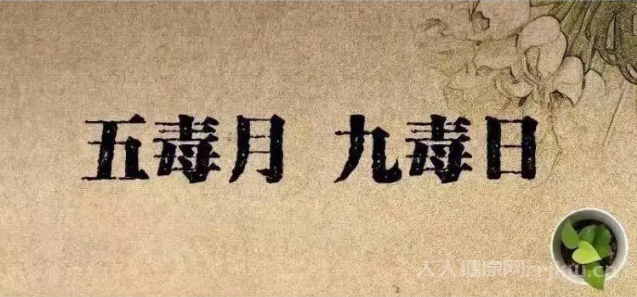 五毒月 九毒日
人人健康网rrjk.cn